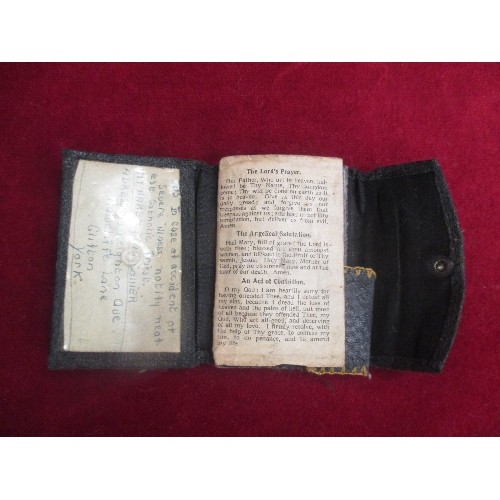 In case of accident or
severe illness notify next
Clifton
York.
The Lord's Prayer.
Our Father, Who art in heaven, hal-
lowed be Thy Name, Thy kingdom
come; Thy will be done on earth as it
is in heaven. Give us this day our
daily bread; and forgive us our
trespasses as we forgive them that
trespass against us; and lead us not into
temptation, but deliver us from evil,
Amen.
The Angelical Salutation.
Hail Mary, full of grace! the Lord is
with thee; blessed art thou amongst
women, and blessed is the fruit of Thy
womb, Jesus. Holy Mary, Mother of
God, pray for us sinners now and at the
hour of our death. Amen.
An Act of Contrition.
O my God: I am heartily sorry for
having offended Thee, and I detest all
my sins, because I dread the loss of
heaven and the pains of hell, but most
of all because they offended Thee, my
God, Who art all-good, and deserving
of all my love. I firmly resolve, with
the help of Thy grace, to confess my
sins, to do penance, and to amend
my life.